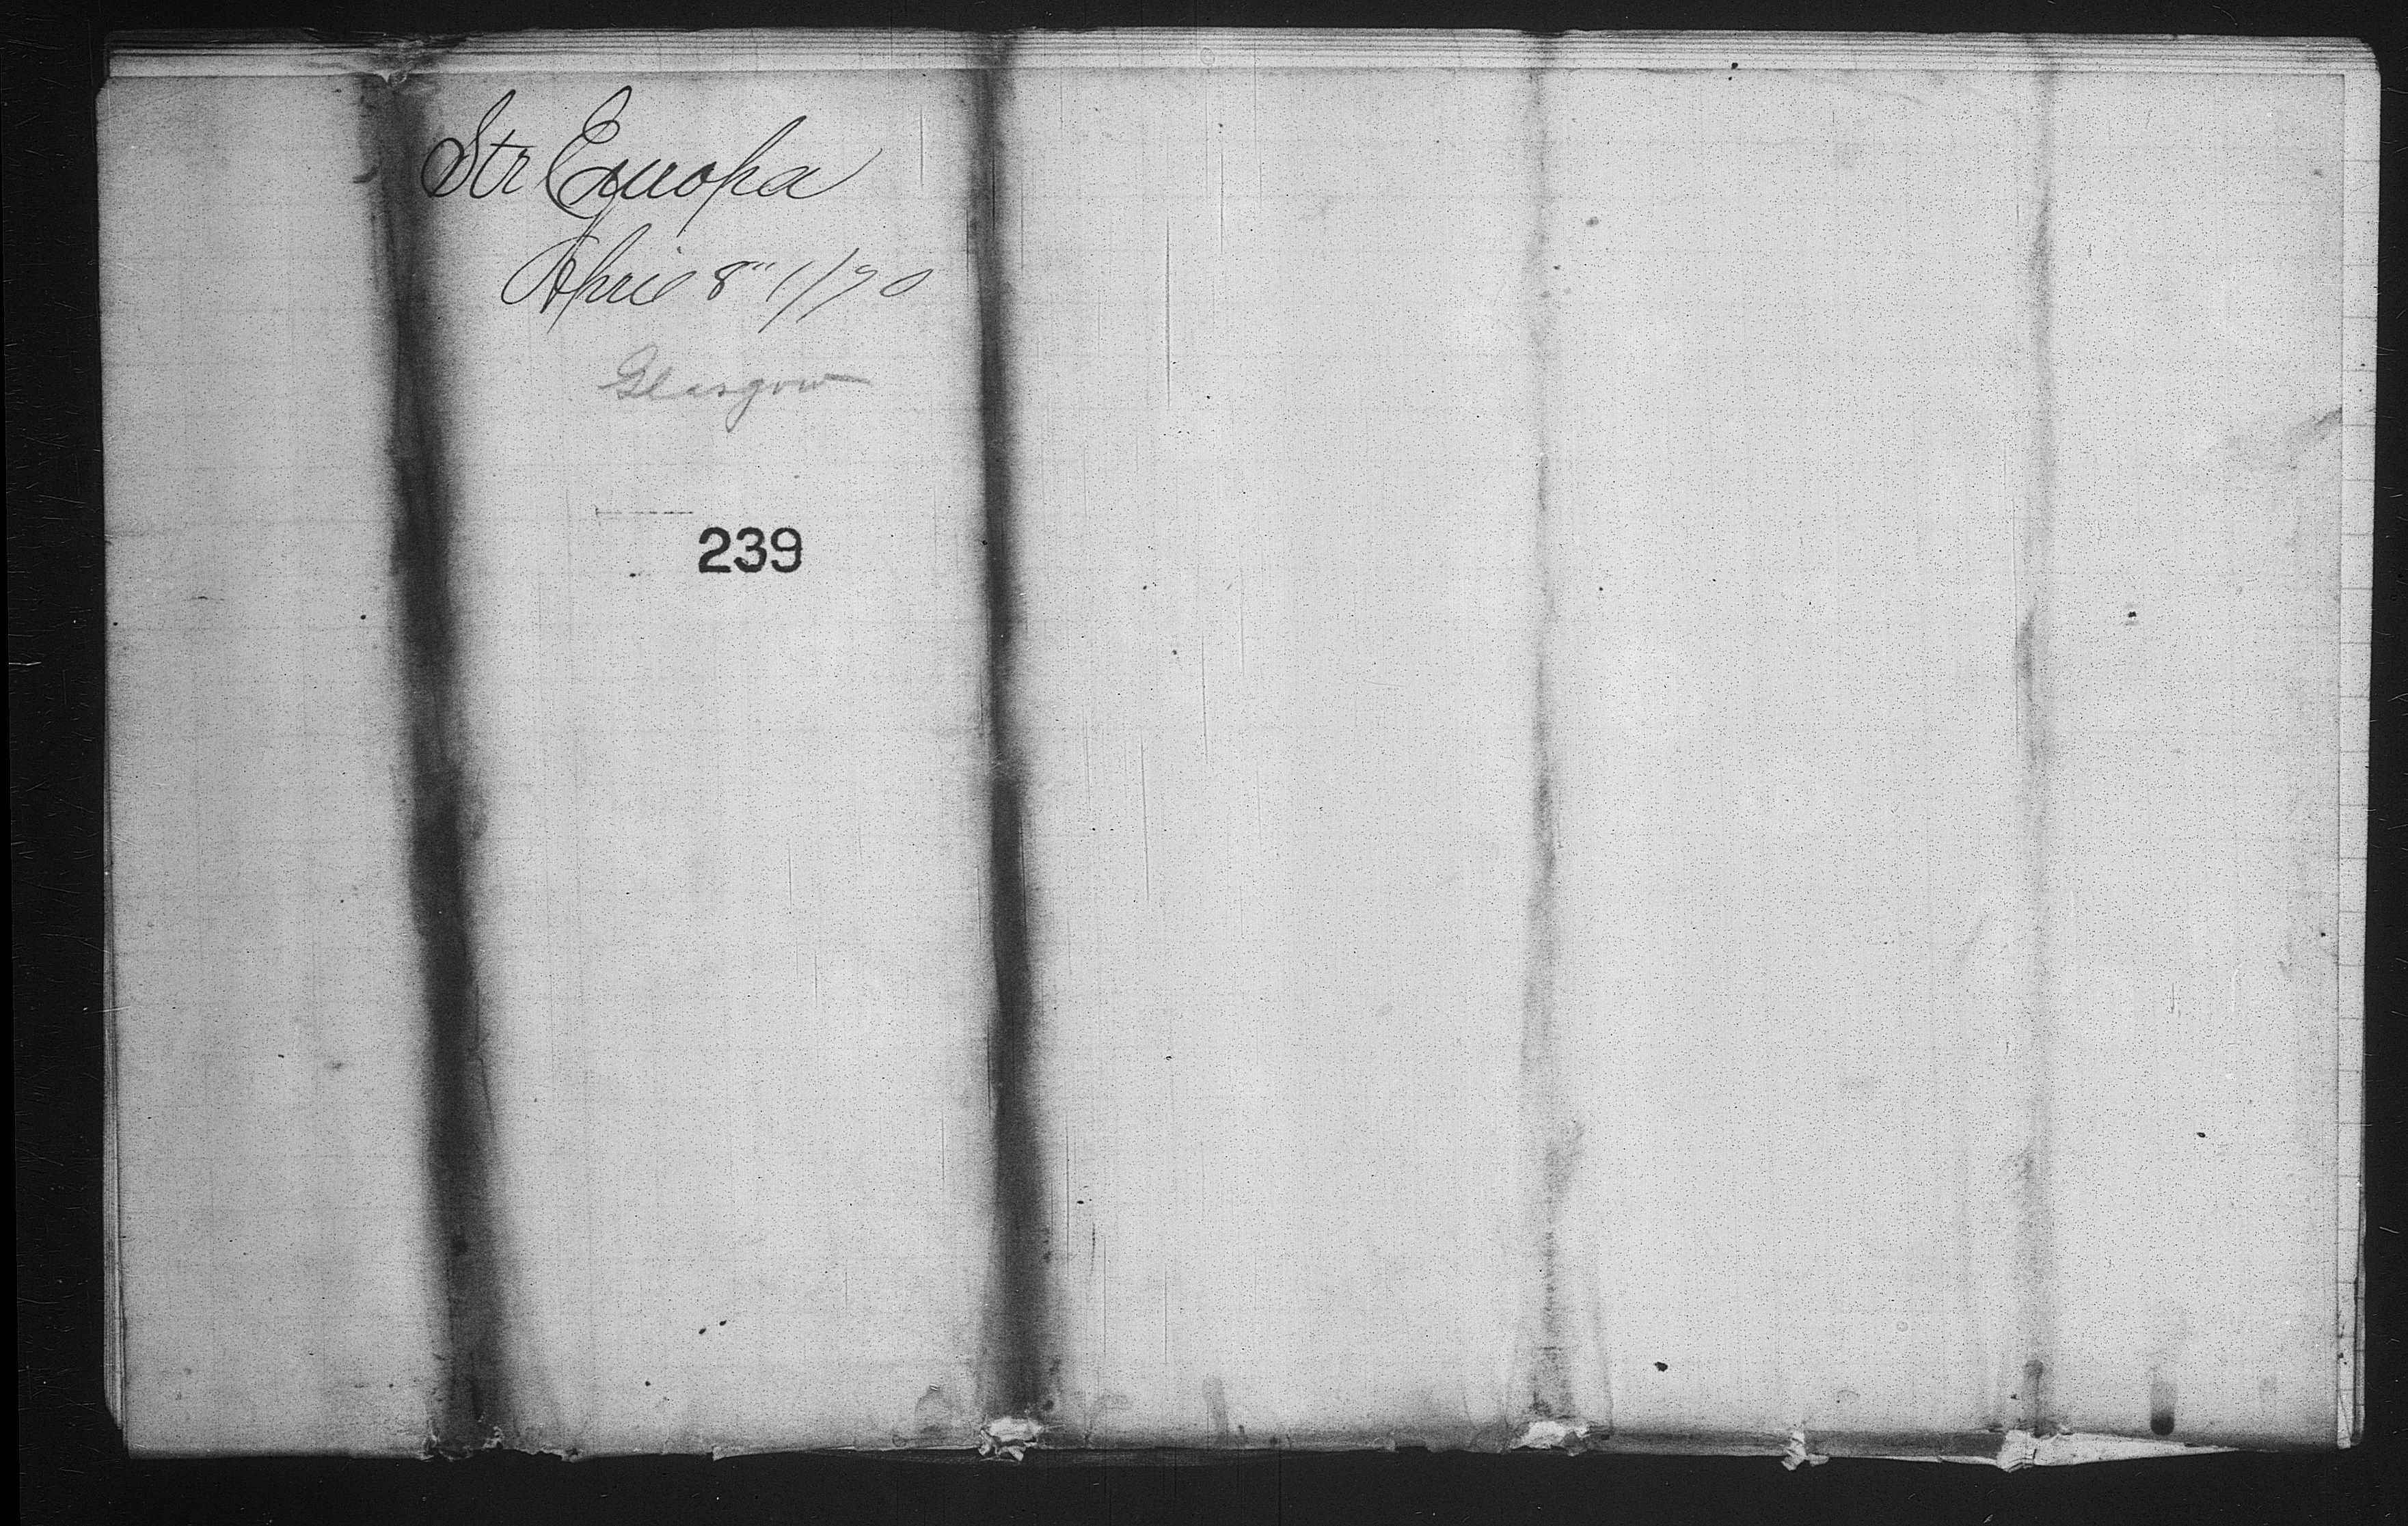 Str Europa
April 8" 1/70
Glasgow
239